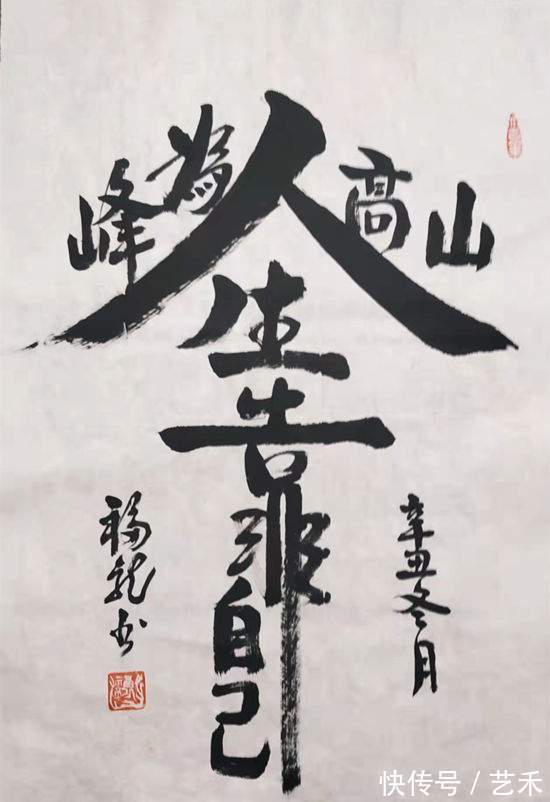 山髙人為峰
生靠自己
辛丑冬月
福龍书
快传号 / 艺禾